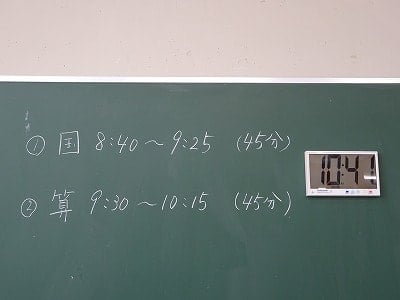 ① 国 8:40～9:25 (45分)
② 算 9:30～10:15 (45分)
10:41